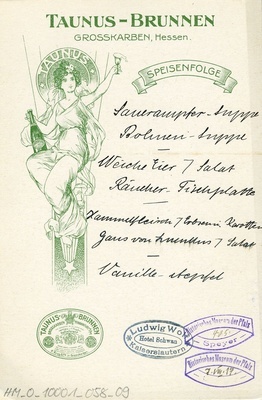 TAUNUS-BRUNNEN
GROSSKARBEN, Hessen.
TAUNUS
SPEISENFOLGE
Sauerampfer-Suppe
Bohnen-Suppe
Weiche Eier / Salat
Räucher-Fischplatte
Hammelfleisch / Erbsen u. Karotten
Gans von / Salat
Vanille-Aepfel
TAUNUS-BRUNNEN
Ludwig
Hotel Schwan
Kaiserslautern
Historisches Museum der Pfalz
Speyer
Historisches Museum der Pfalz
HM_0_10001_058_09